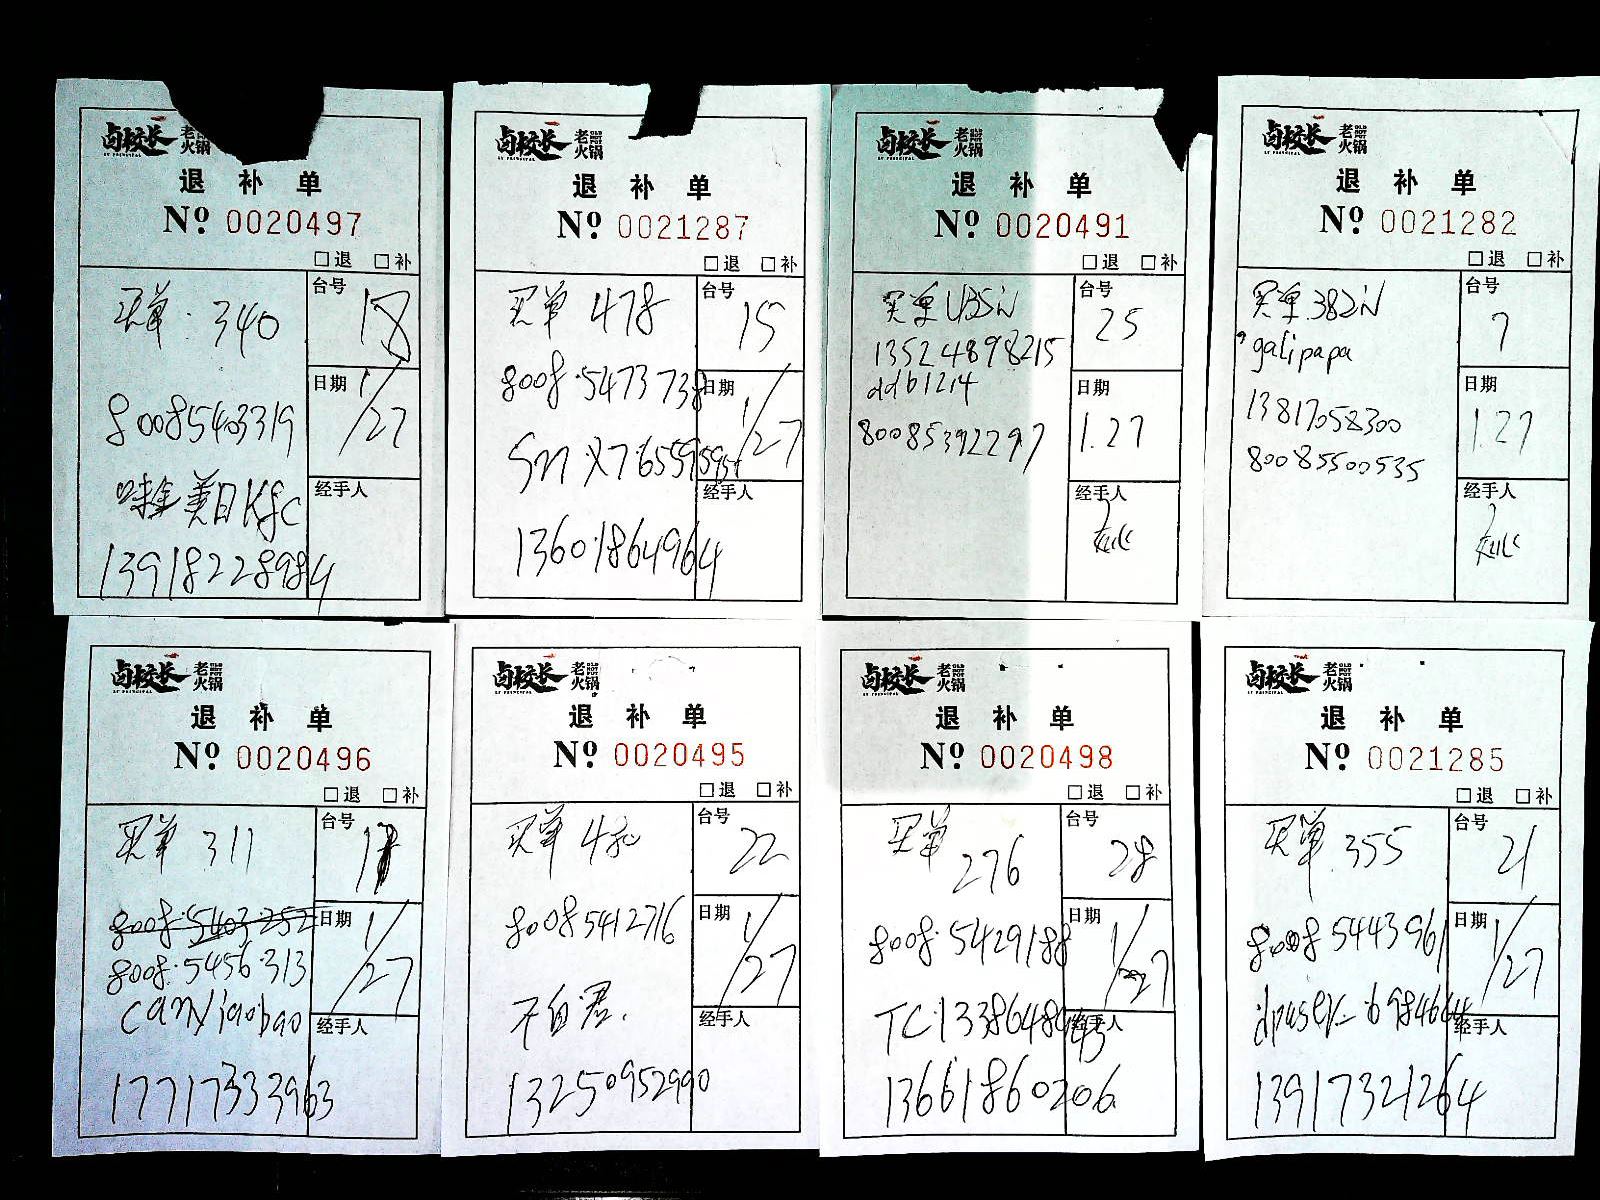 卤校长 老火锅
退 补 单
Nº 0020497
□退 □补
买单 340
台号 18
80085403319
日期 1/27
美日Kfc
经手人
13918228984
卤校长 老火锅
退 补 单
Nº 0021287
□退 □补
买单 478
台号 15
8008.5473738
日期 1/27
经手人
13601864964
卤校长 老火锅
退 补 单
Nº 0020491
□退 □补
买单
台号 25
13524898215
ddb1214
日期 1.27
80085392297
经手人
卤校长 老火锅
退 补 单
Nº 0021282
□退 □补
买单 382
台号 7
galipapa
13817058300
日期 1.27
80085500535
经手人
卤校长 老火锅
退 补 单
Nº 0020496
□退 □补
买单 311
台号 17
8008.5403.252
日期 1/27
8008.5456.313
经手人
17717333963
卤校长 老火锅
退 补 单
Nº 0020495
□退 □补
买单
台号 22
80085412716
日期 1/27
经手人
13250952990
卤校长 老火锅
退 补 单
Nº 0020498
□退 □补
买单 276
台号 28
8008.5429188
日期 1/27
经手人
13661860206
卤校长 老火锅
退 补 单
Nº 0021285
□退 □补
买单 355
台号 21
8008 5443961
日期 1/27
经手人
13917321264